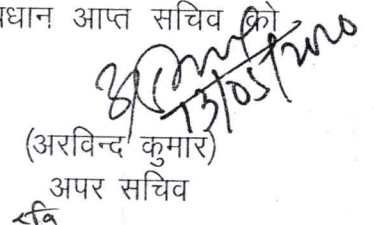 धान आप्त सचिव को
13/05/2020
(अरविन्द कुमार)
अपर सचिव
रवि